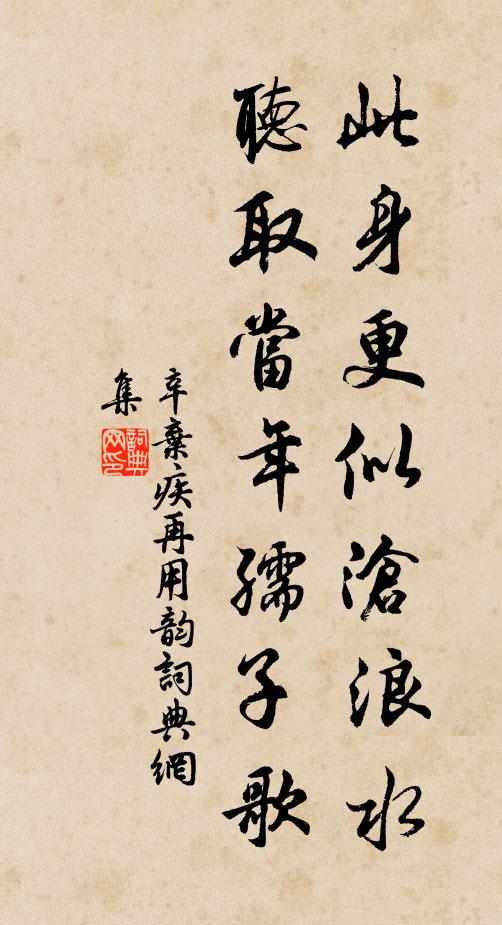 此身更似滄浪水
聽取當年孺子歌
辛棄疾再用韵詞典網
集
詞典網印